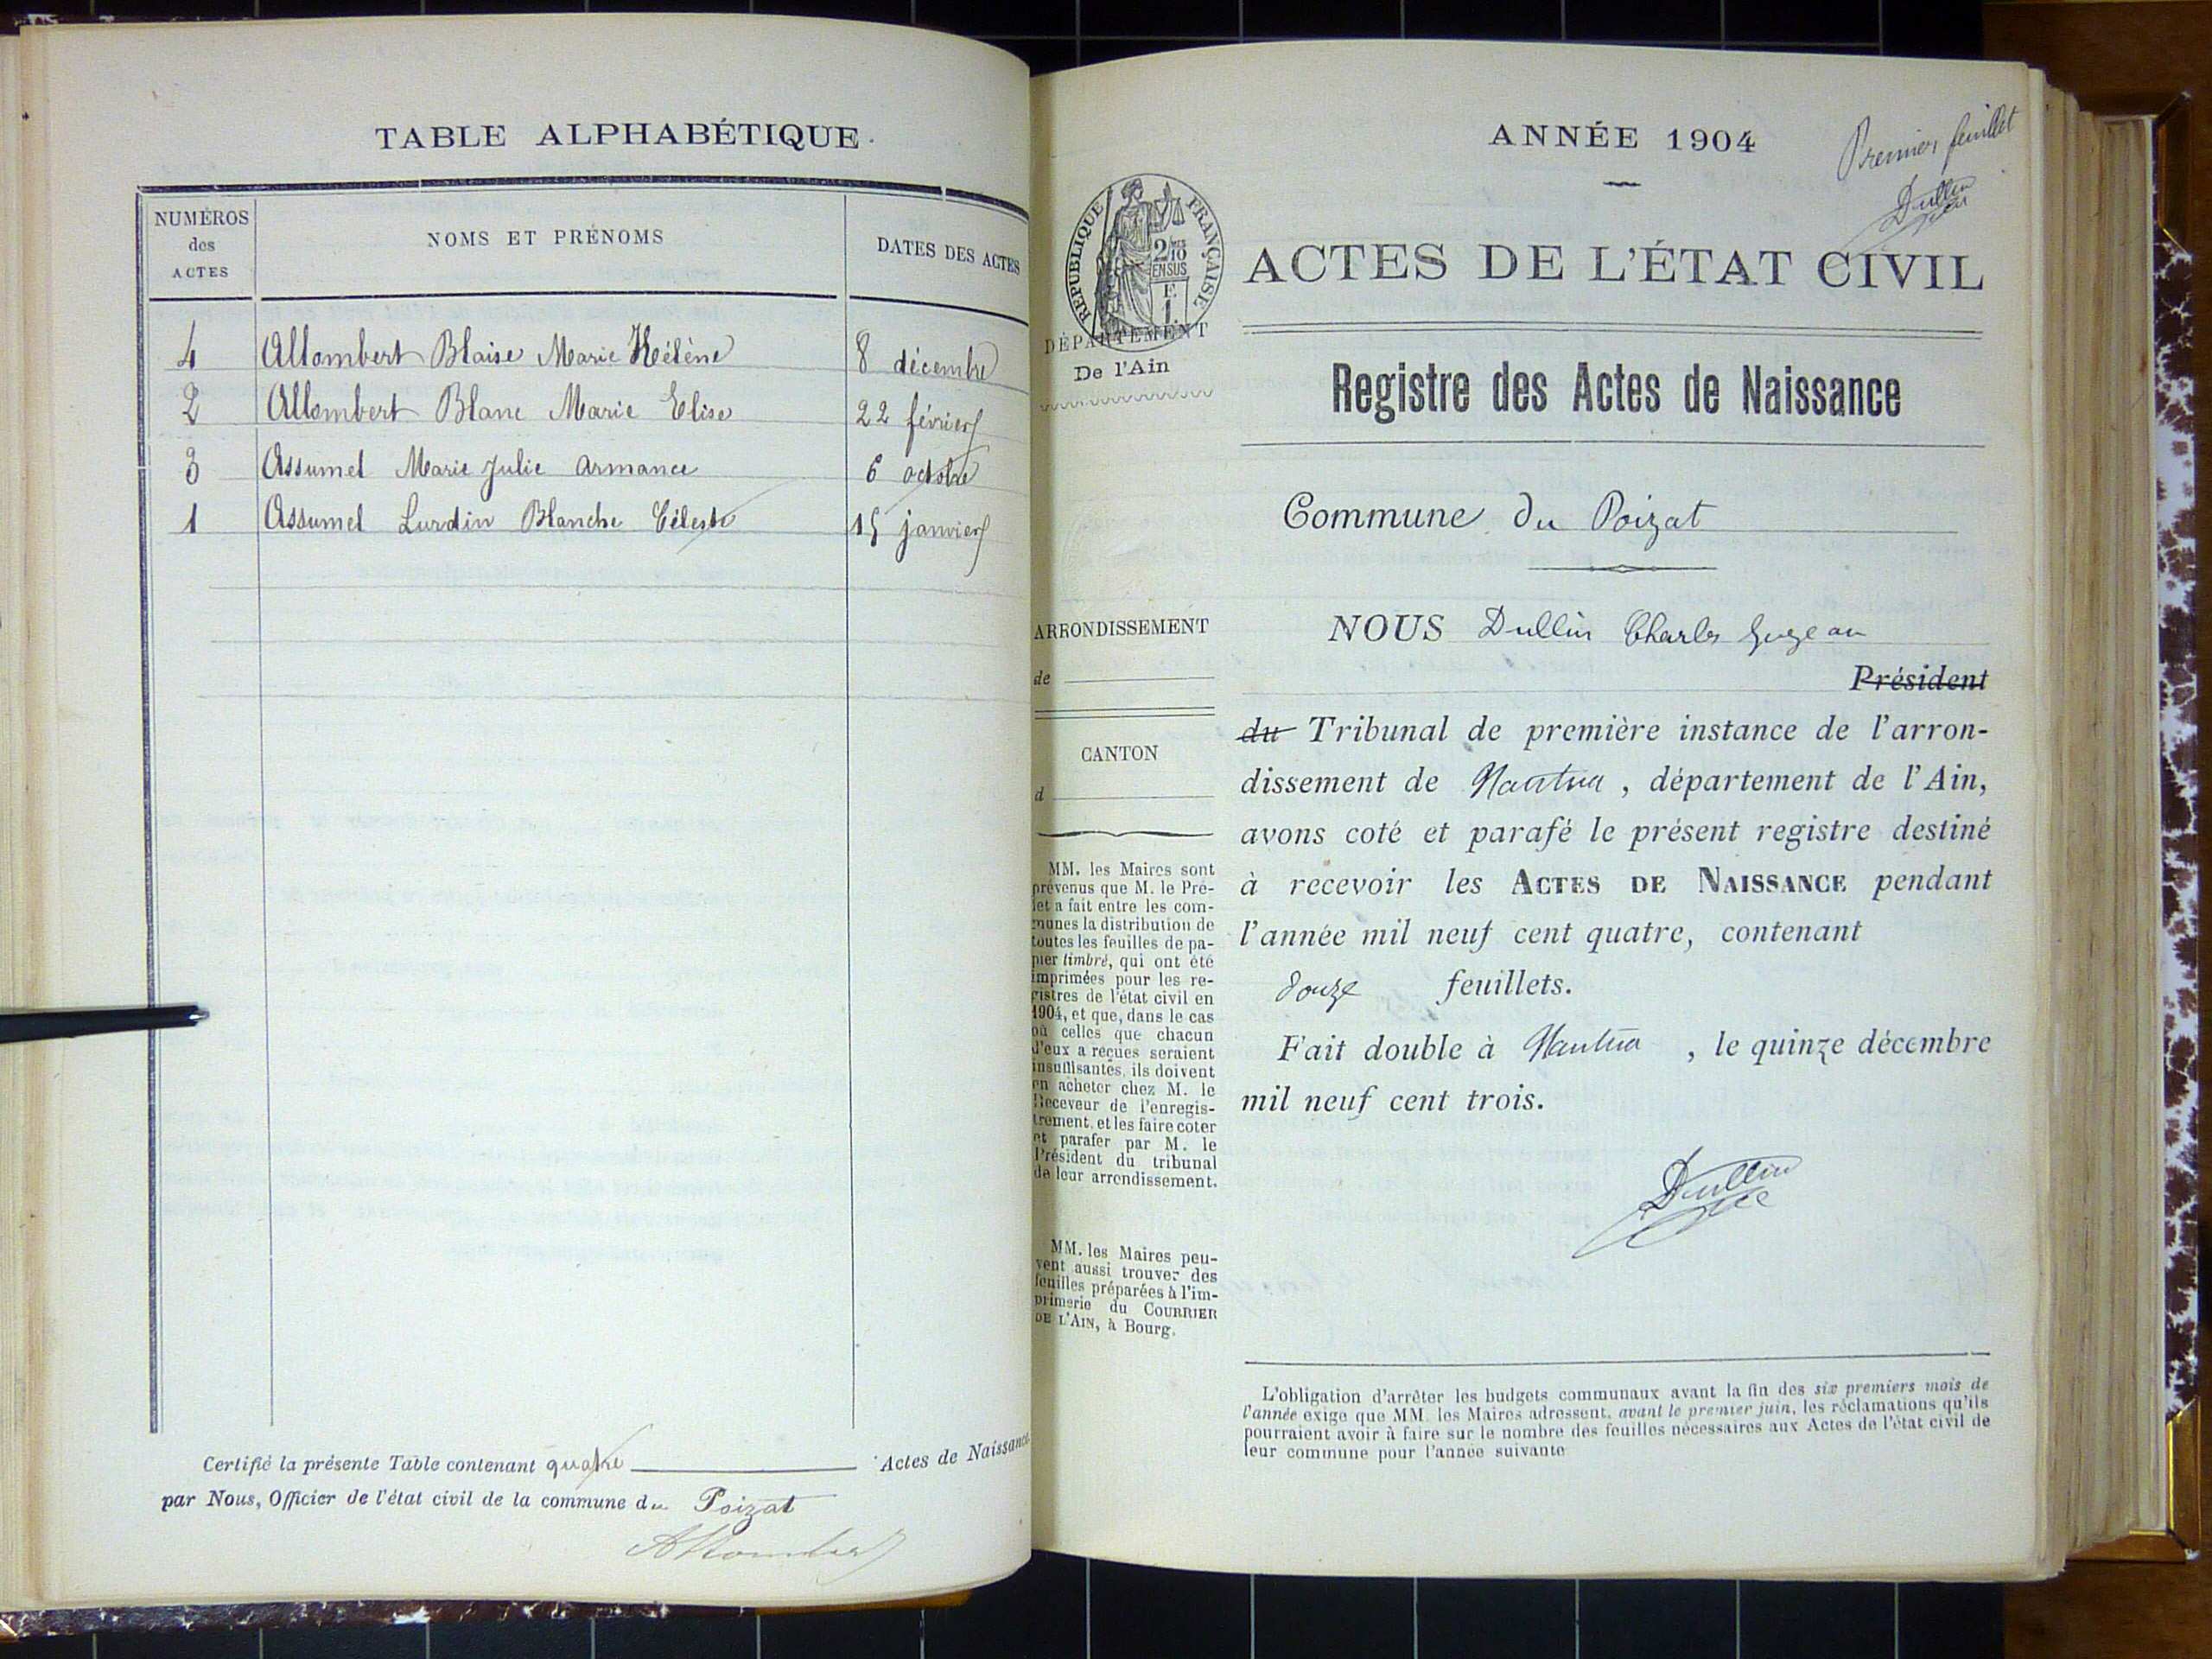 TABLE ALPHABÉTIQUE
NUMÉROS
des
ACTES
NOMS ET PRÉNOMS
DATES DES ACTES
4 Allombert Blaise Marie Hélène 8 décembre
2 Allombert Blanc Marie Elise 22 février
3 Assumel Marie Julie Armance 6 octobre
1 Assumel Lurdin Blanche Céleste 15 janvier
Certifié la présente Table contenant quatre Actes de Naissance
par Nous, Officier de l'état civil de la commune du Poizat
Allombert
ANNÉE 1904
Premier feuillet
Dullin
RÉPUBLIQUE FRANÇAISE
2/10
EN SUS
F.
1.
DÉPARTEMENT
De l'Ain
ACTES DE L'ÉTAT CIVIL
Registre des Actes de Naissance
Commune du Poizat
ARRONDISSEMENT
de
CANTON
d
MM. les Maires sont
prévenus que M. le Pré-
fet a fait entre les com-
munes la distribution de
toutes les feuilles de pa-
pier timbré, qui ont été
imprimées pour les re-
gistres de l'état civil en
1904, et que, dans le cas
où celles que chacun
d'eux a reçues seraient
insuffisantes, ils doivent
en acheter chez M. le
Receveur de l'enregis-
trement, et les faire coter
et parafer par M. le
Président du tribunal
de leur arrondissement.
MM. les Maires peu-
vent aussi trouver des
feuilles préparées à l'im-
primerie du COURRIER
DE L'AIN, à Bourg.
NOUS Dullin Charles
Président
du Tribunal de première instance de l'arron-
dissement de Nantua, département de l'Ain,
avons coté et parafé le présent registre destiné
à recevoir les ACTES DE NAISSANCE pendant
l'année mil neuf cent quatre, contenant
douze feuillets.
Fait double à Nantua, le quinze décembre
mil neuf cent trois.
Dullin
L'obligation d'arrêter les budgets communaux avant la fin des six premiers mois de
l'année exige que MM. les Maires adressent, avant le premier juin, les réclamations qu'ils
pourraient avoir à faire sur le nombre des feuilles nécessaires aux Actes de l'état civil de
leur commune pour l'année suivante